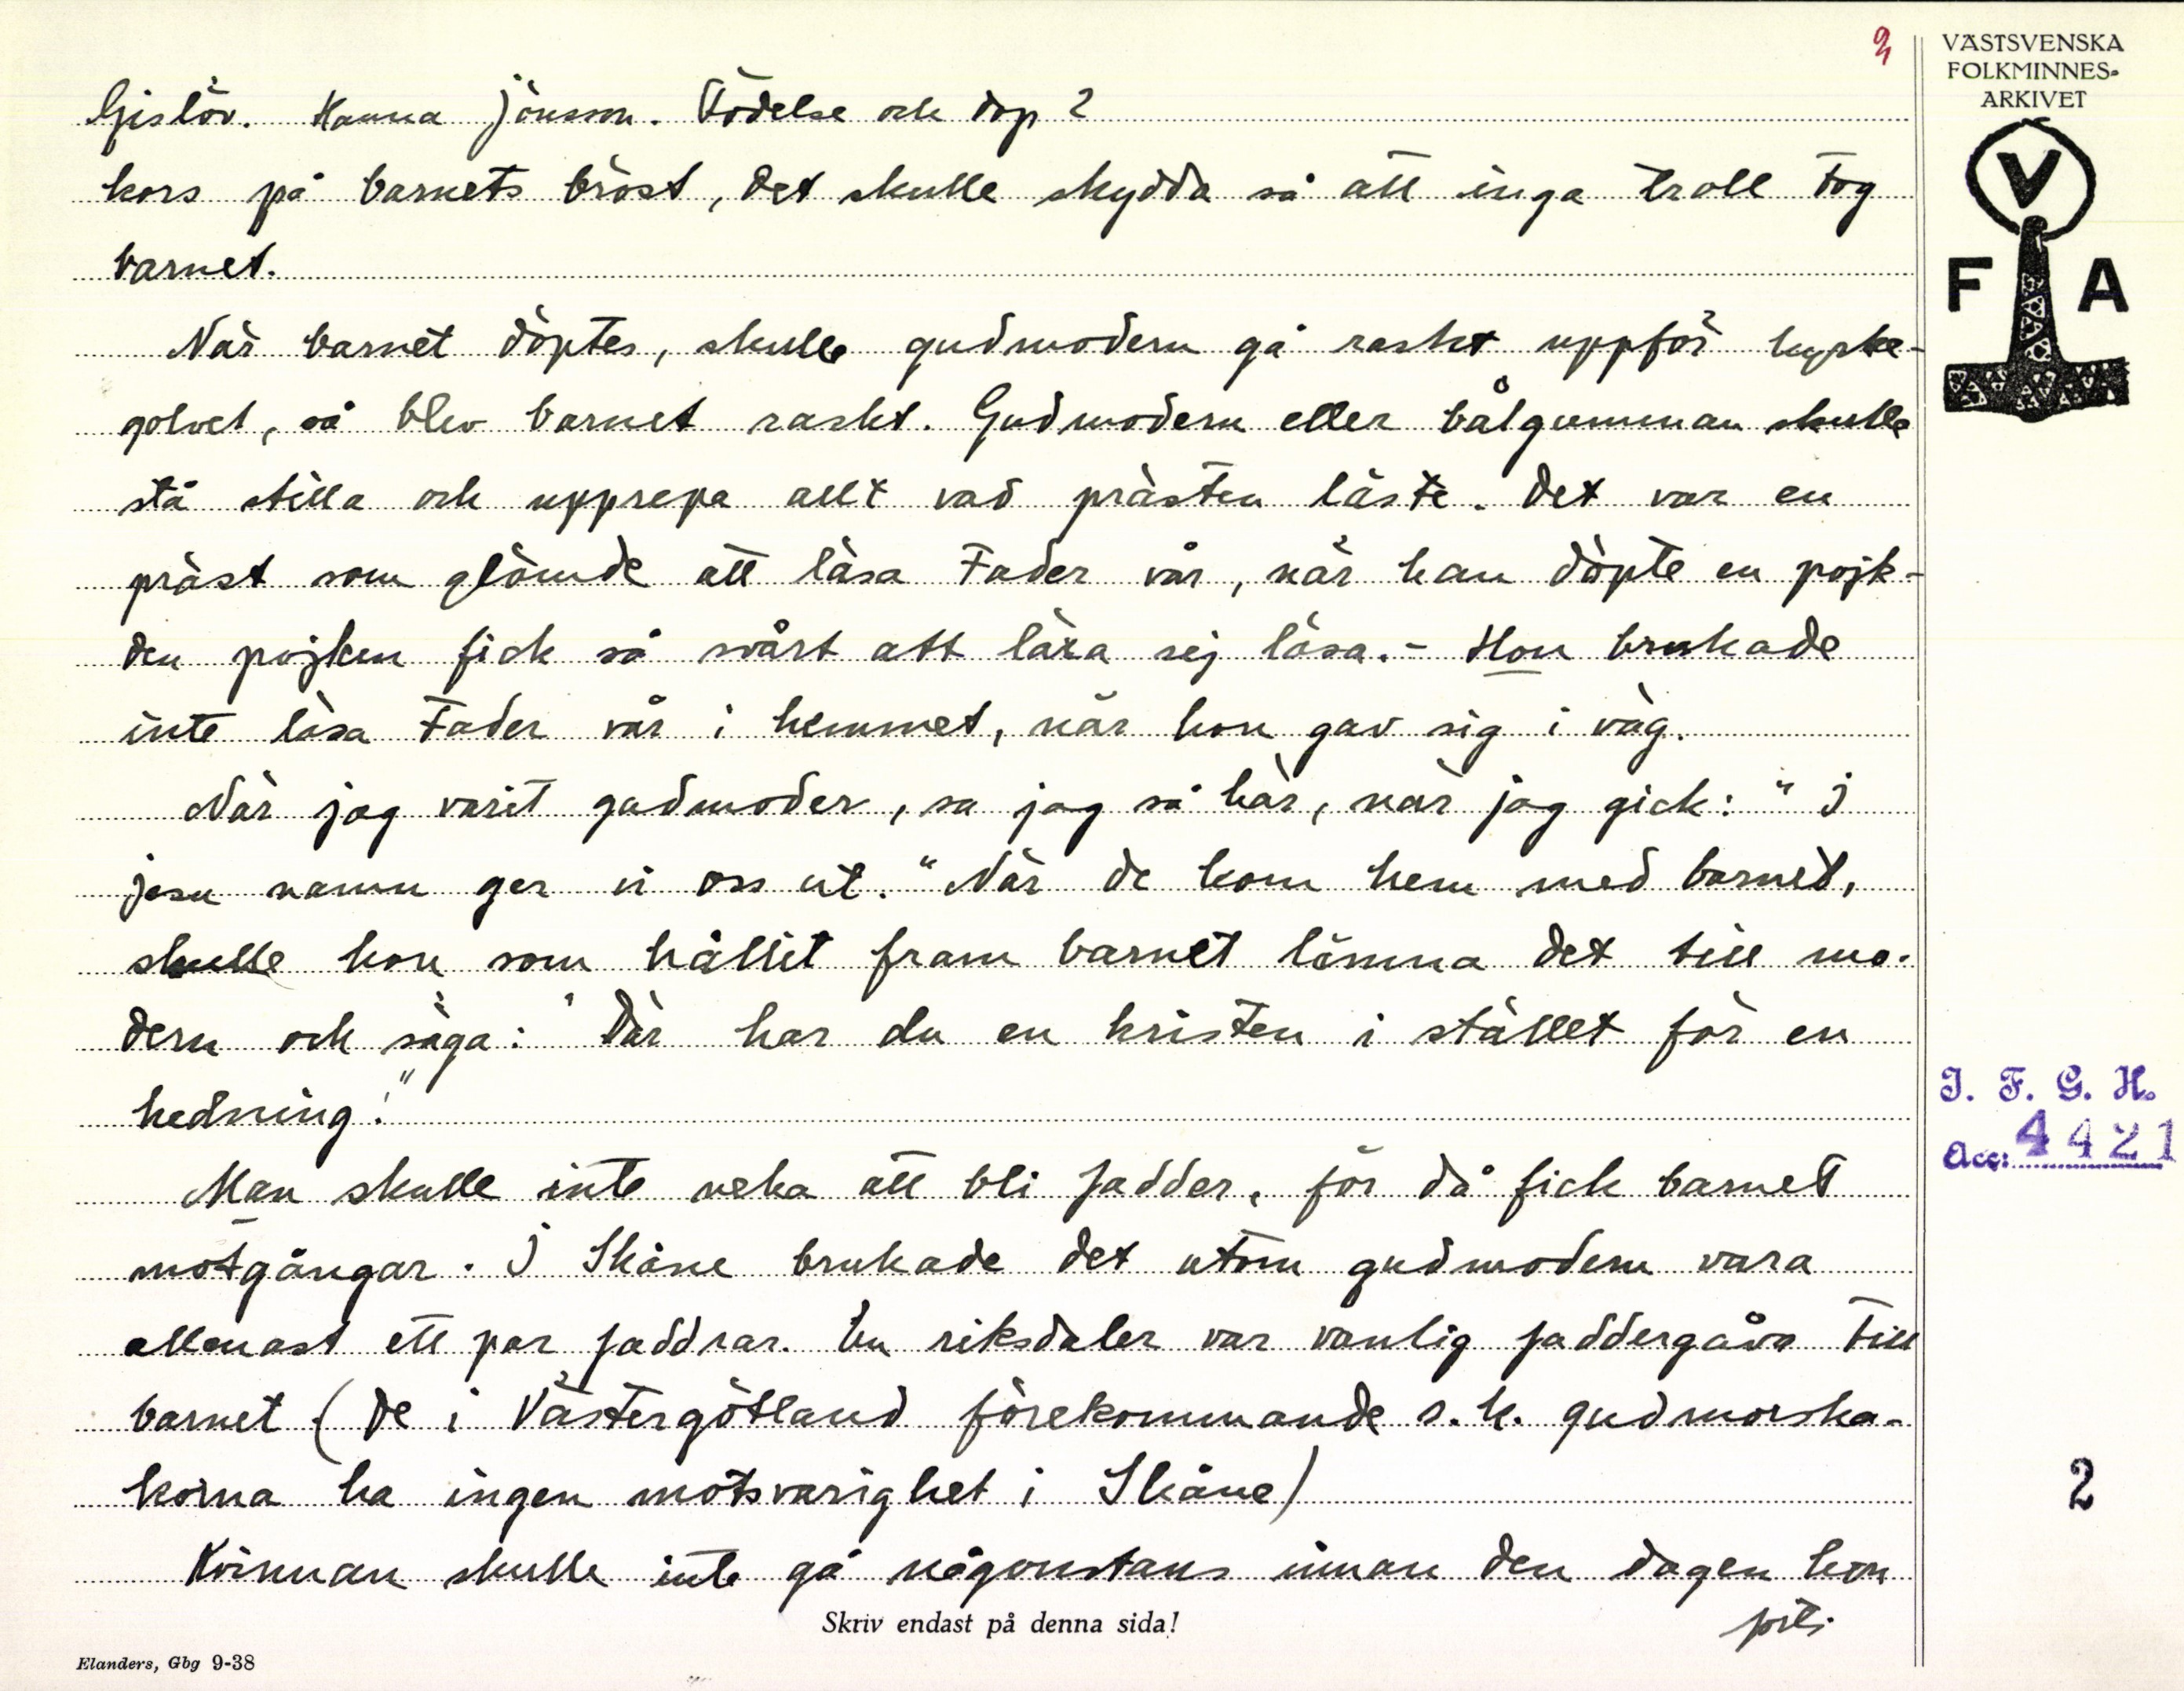 2
VÄSTSVENSKA
FOLKMINNES-
ARKIVET
V
F A
Gislöv. Hanna Jönsson. Födelse och dop 2
kors på barnets bröst, det skulle skydda så att inga troll tog
barnet.
När barnet döptes, skulle gudmodern gå raskt uppför kyrko-
golvet, så blev barnet raskt. Gudmodern eller bålgumman skulle
stå stilla och upprepa allt vad prästen läste. Det var en
präst som glömde att läsa Fader vår, när han döpte en pojk-
den pojken fick så svårt att lära sej läsa. - Hon brukade
inte läsa Fader vår i hemmet, när hon gav sig i väg.
När jag varit gudmoder, sa jag så här, när jag gick: "I
Jesu namn ger vi oss ut." När de kom hem med barnet,
skulle hon som hållit fram barnet lämna det till mo-
dern och säga: "Där har du en kristen i stället för en
hedning!"
Man skulle inte neka att bli fadder, för då fick barnet
motgångar. I Skåne brukade det utom gudmodern vara
allenast ett par faddrar. En riksdaler var vanlig faddergåva till
barnet (de i Västergötland förekommande s.k. gudmorska-
korna ha ingen motsvarighet i Skåne)
Kvinnan skulle inte gå någonstans innan den dagen hon
Skriv endast på denna sida!
Elanders, Gbg 9-38
I. F. G. H.
Acc: 4421
2